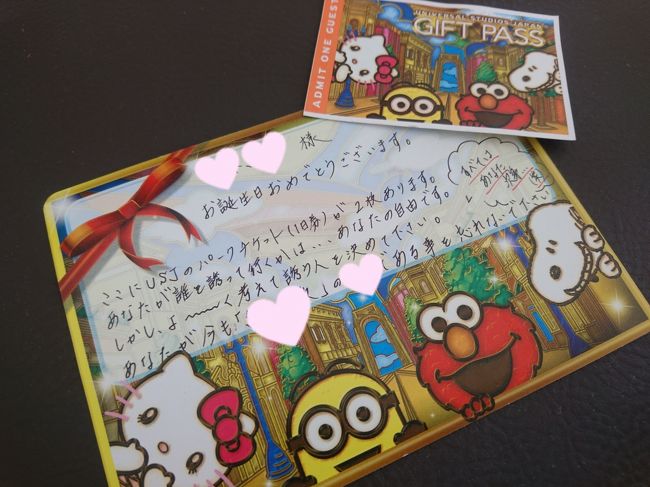 ADMIT ONE GUEST
UNIVERSAL STUDIOS JAPAN
GIFT PASS
様
お誕生日おめでとうございます。
ここにUSJのパークチケット(1日券)が2枚あります。
あなたが誰を誘って行くかは…あなたの自由です。
しかし、よ〜〜く考えて誘う人を決めて下さい。
あなたが今も
の
ある事を忘れないで下さい
すべては
あなた